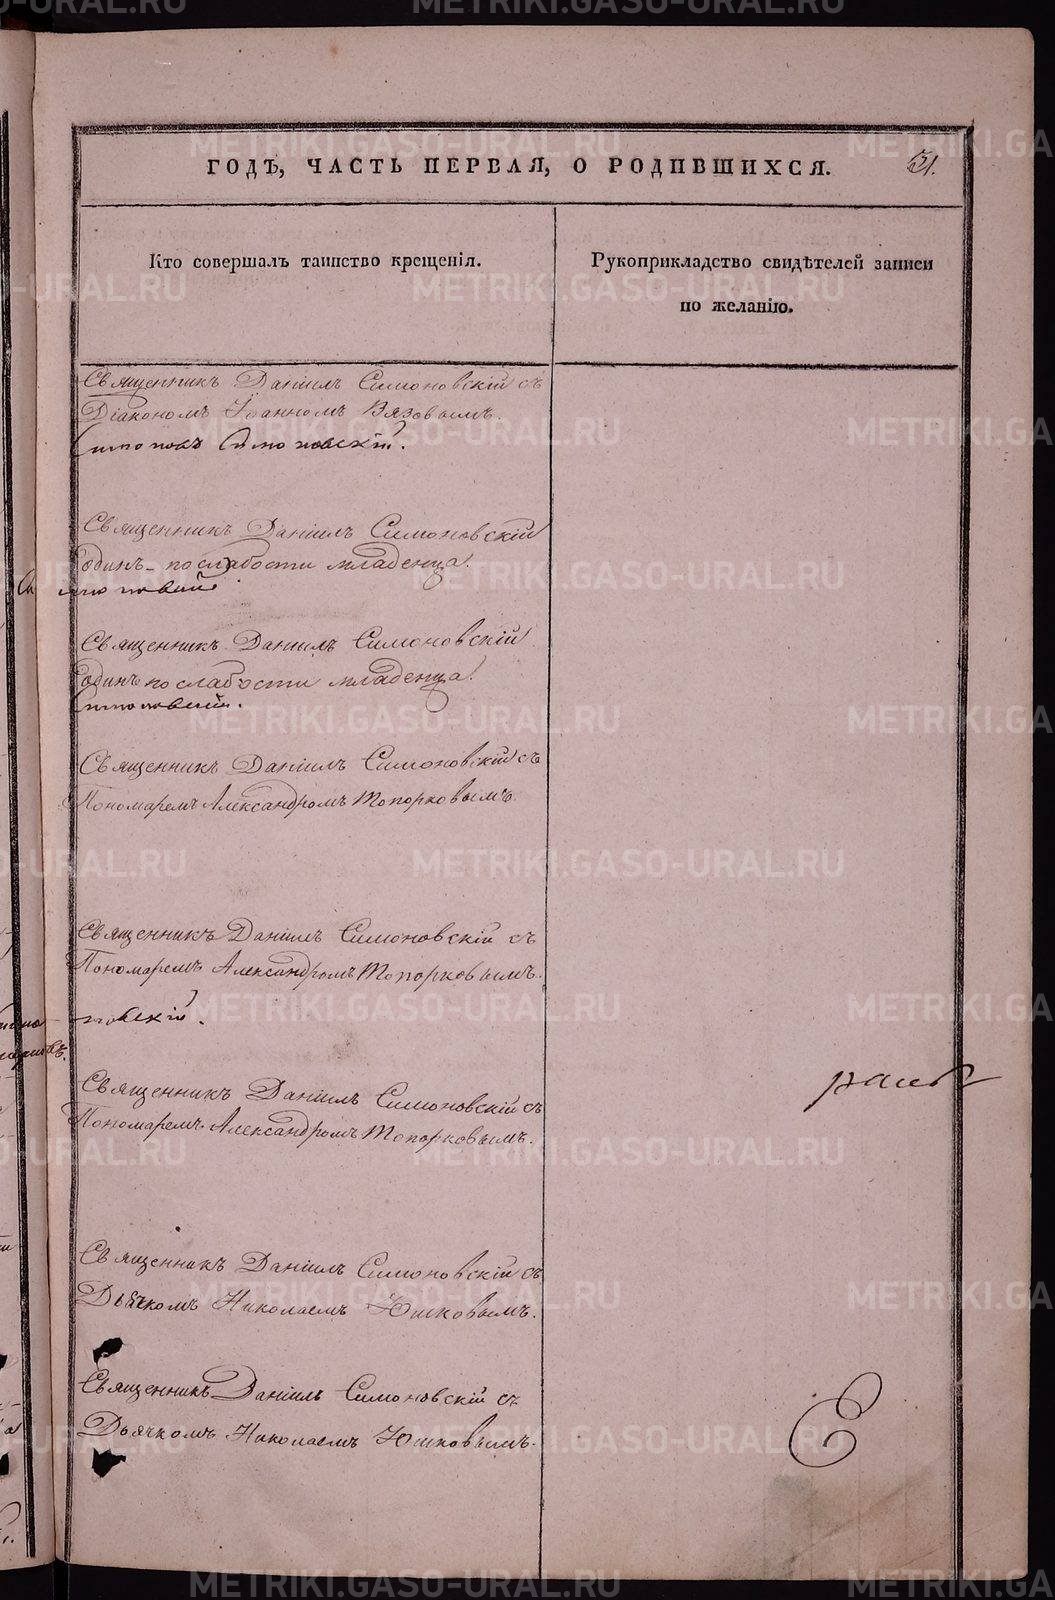 ГОДЪ, ЧАСТЬ ПЕРВАЯ, О РОДИВШИХСЯ.
31.
Кто совершалъ таинство крещенія.
Рукоприкладство свидѣтелей записи
по желанію.
Священникъ Даніилъ Симоновскій съ
Діакономъ Іоанномъ Вязовымъ.
Симоновскій.
Священникъ Даніилъ Симоновскій
одинъ по слабости младенца.
Священникъ Даніилъ Симоновскій
одинъ по слабости младенца.
Священникъ Даніилъ Симоновскій съ
Пономаремъ Александромъ Топорковымъ.
Священникъ Даніилъ Симоновскій съ
Пономаремъ Александромъ Топорковымъ.
новскій.
Священникъ Даніилъ Симоновскій съ
Пономаремъ Александромъ Топорковымъ.
Священникъ Даніилъ Симоновскій съ
Дьячкомъ Николаемъ Юшковымъ.
Священникъ Даніилъ Симоновскій съ
Дьячкомъ Николаемъ Юшковымъ.
METRIKI.GASO-URAL.RU